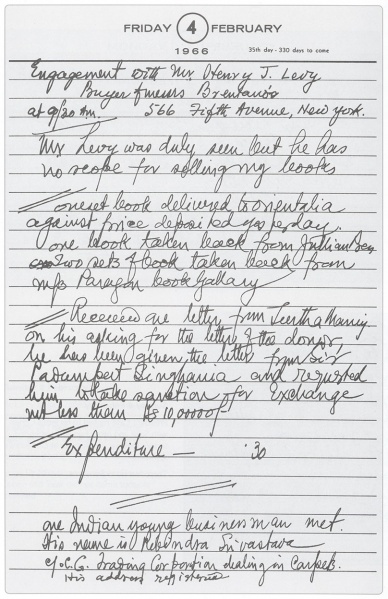 FRIDAY 4 FEBRUARY
1966 35th day - 330 days to come
Engagement with Mr. Henry J. Levy
Buyer Messrs Brentano's
at 9/30 Am. 566 Fifth Avenue, New York.
Mr Levy was duly seen but he has
no scope for selling my books
one set book delivered to orientalia
against price deposited yesterday.
one book taken back from Julian
Two sets of book taken back from
m/s Paragon book Gallary
Received one letter from Tirtha Maharaj
on his asking for the letter of the donor,
he has been given the letter from Sir
Padampat Singhania and requested
him to take sanction of exchange
not less than Rs 10,000/-
Expenditure — .30
one Indian young businessman met.
His name is Rabindra Srivastava
c/o. C.G. Trading Corporation dealing in Carpets.
His address registered